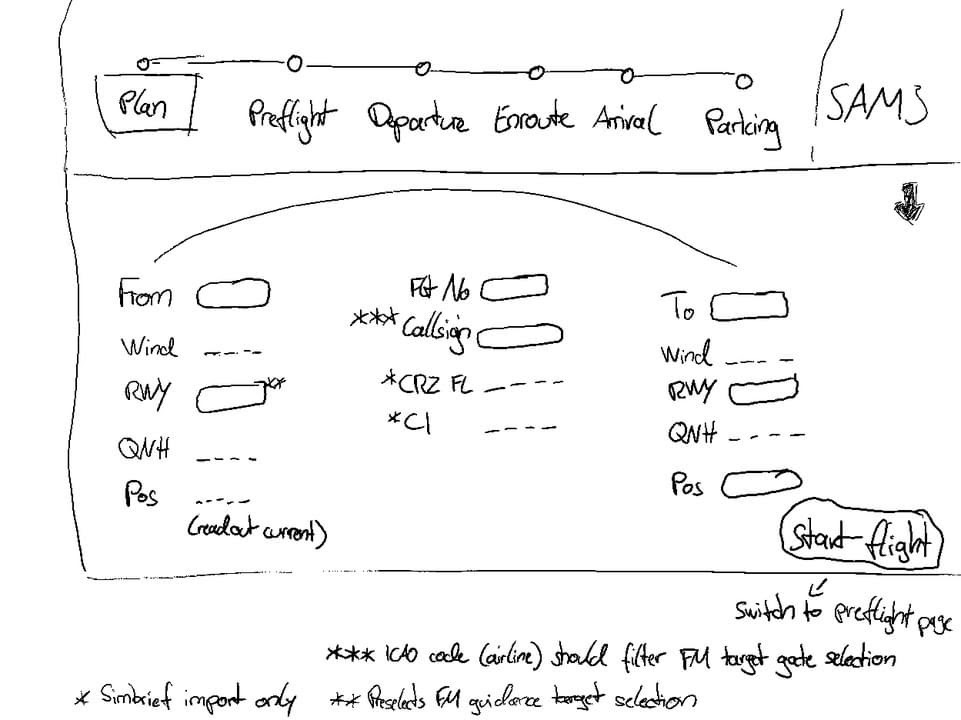 Plan Preflight Departure Enroute Arrival Parking SAM3
From
Wind ----
RWY **
QNH ----
Pos -----
(readout current)
Flt No
*** Callsign
*CRZ FL ----
*CI ----
To
Wind ----
RWY
QNH ----
Pos
Start flight
Switch to preflight page
*** ICAO code (airline) should filter FM target gate selection
* Simbrief import only
** Preselects FM guidance target selection